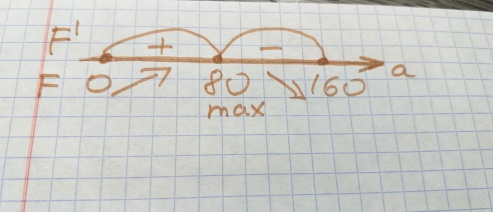 F' + -
F 0 80 160 a
max